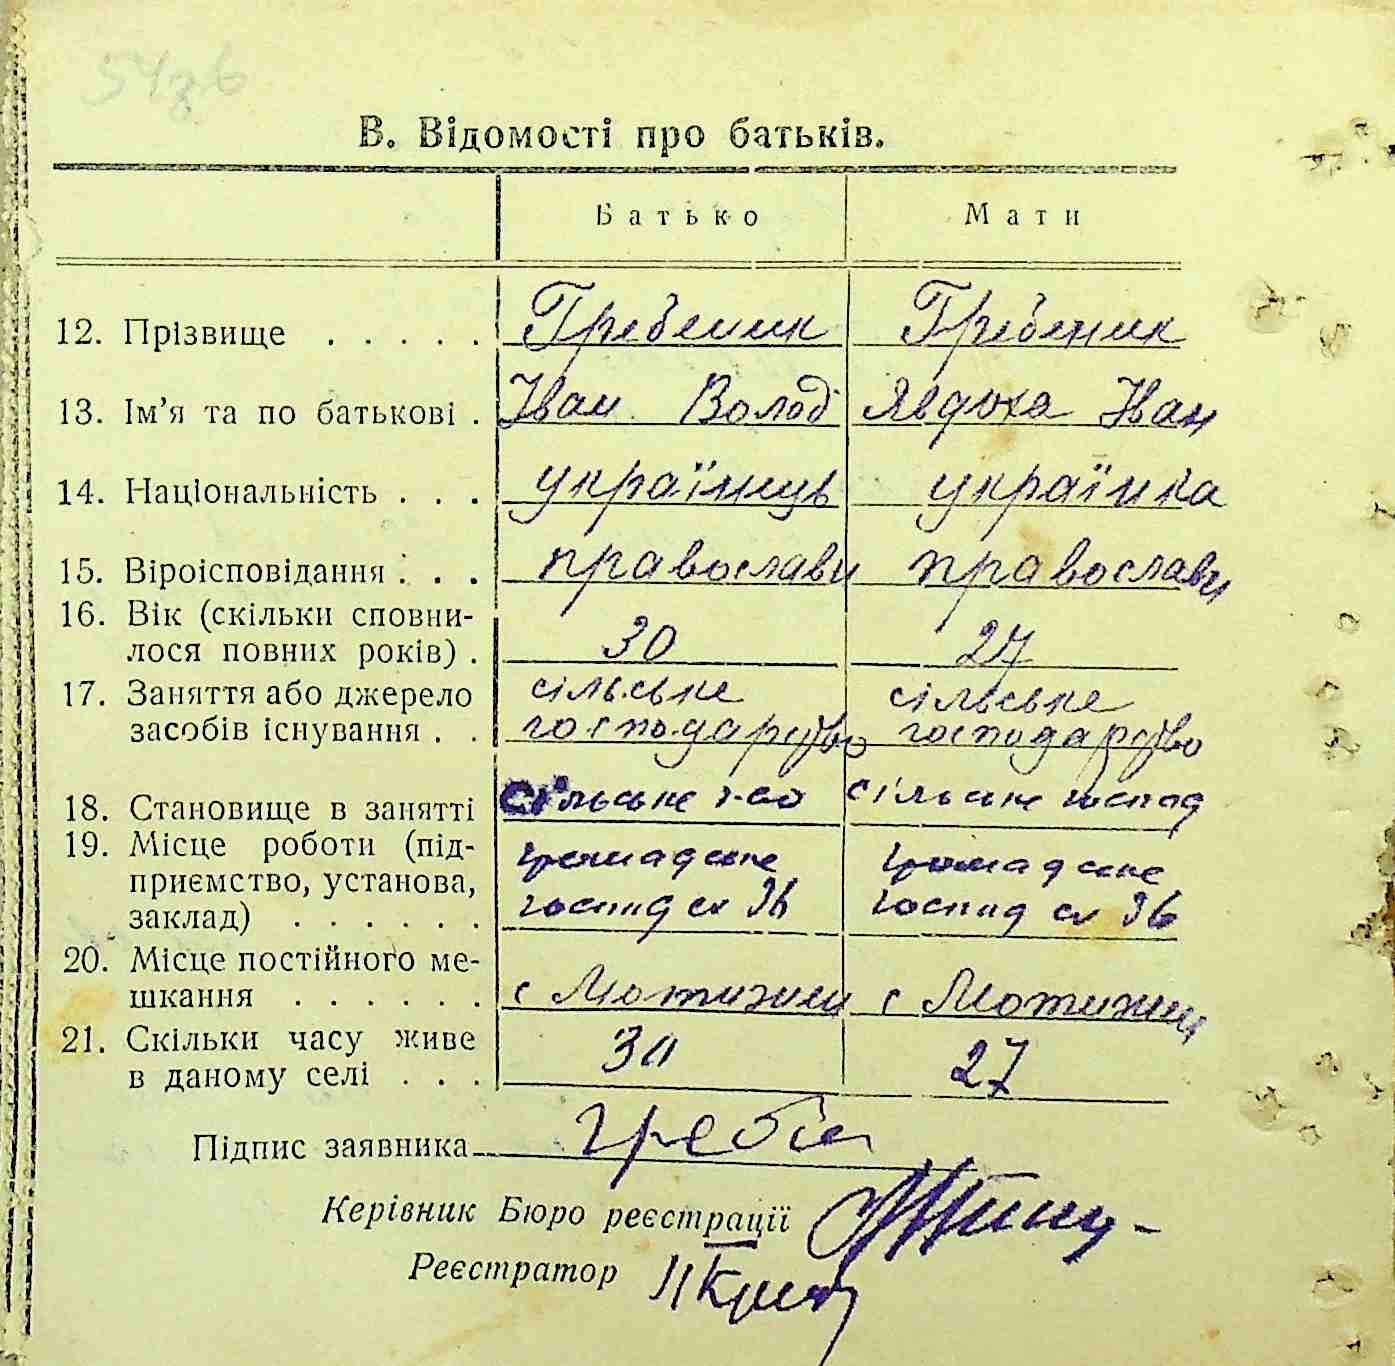 В. Відомості про батьків.
Батько Мати
12. Прізвище . . . . . Гребеник Гребеник
13. Ім’я та по батькові . Іван Волод Явдоха Іван
14. Національність . . . українець українка
15. Віроісповідання . . . православн православн
16. Вік (скільки сповни-
лося повних років) . 30 27
17. Заняття або джерело сільське сільське
засобів існування . . господарство господарство
18. Становище в занятті сільське г-во сільське господ
19. Місце роботи (під- громадське громадське
приємство, установа, господ 96 господ 96
заклад) . . . . . .
20. Місце постійного ме-
шкання . . . . . . с Мотижин с Мотижин
21. Скільки часу живе 30 27
в даному селі . . .
Підпис заявника Гребен
Керівник Бюро реєстрації
Реєстратор